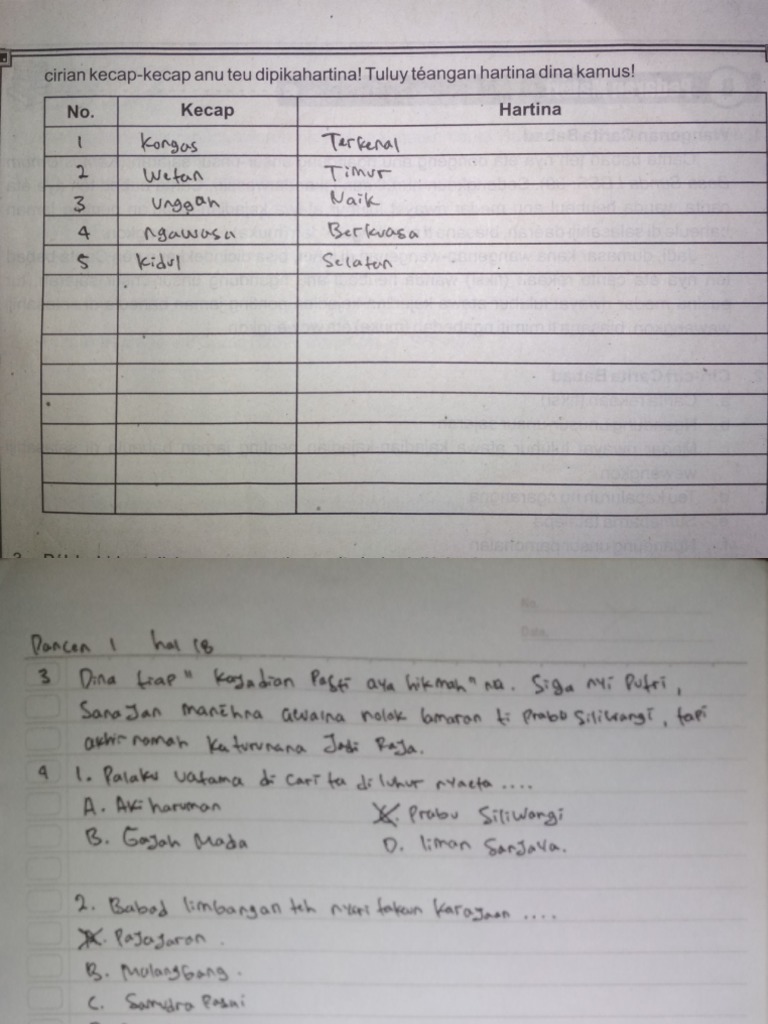 cirian kecap-kecap anu teu dipikahartina! Tuluy téangan hartina dina kamus!
No. Kecap Hartina
1 Kongas Terkenal
2 Wetan Timur
3 Unggah Naik
4 ngawasa Berkuasa
5 Kidul Selatan
Pancen 1 hal 18
3 Dina tiap "Kajadian Pasti aya hikmah" na. Siga nyi Putri,
Sanajan manéhna awalna nolak lamaran ti Prabu Siliwangi, tapi
akhirnamah katurunana Jadi Raja.
4 1. Palaku utama di carita di luhur nyaeta ....
A. Aki haruman
X. Prabu Siliwangi
B. Gajah Mada
D. liman Sanjaya.
2. Babad limbangan teh nyaritakeun Karajaan ....
X. Pajajaran.
B. Malangbang.
C. Samudra Pasai